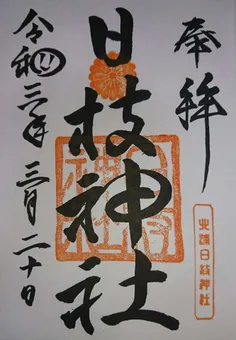 奉拝
日枝神社
日枝神社
令和三年三月二十日